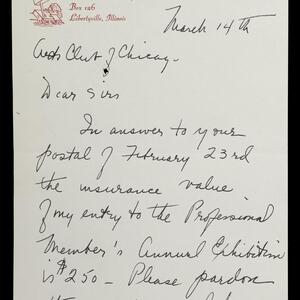 Box 126
Libertyville, Illinois
March 14th
Arts Club of Chicago.
Dear Sirs
In answer to your
postal of February 23rd
the insurance value
of my entry to the Professional
Member's Annual Exhibition
is $250 — Please pardon